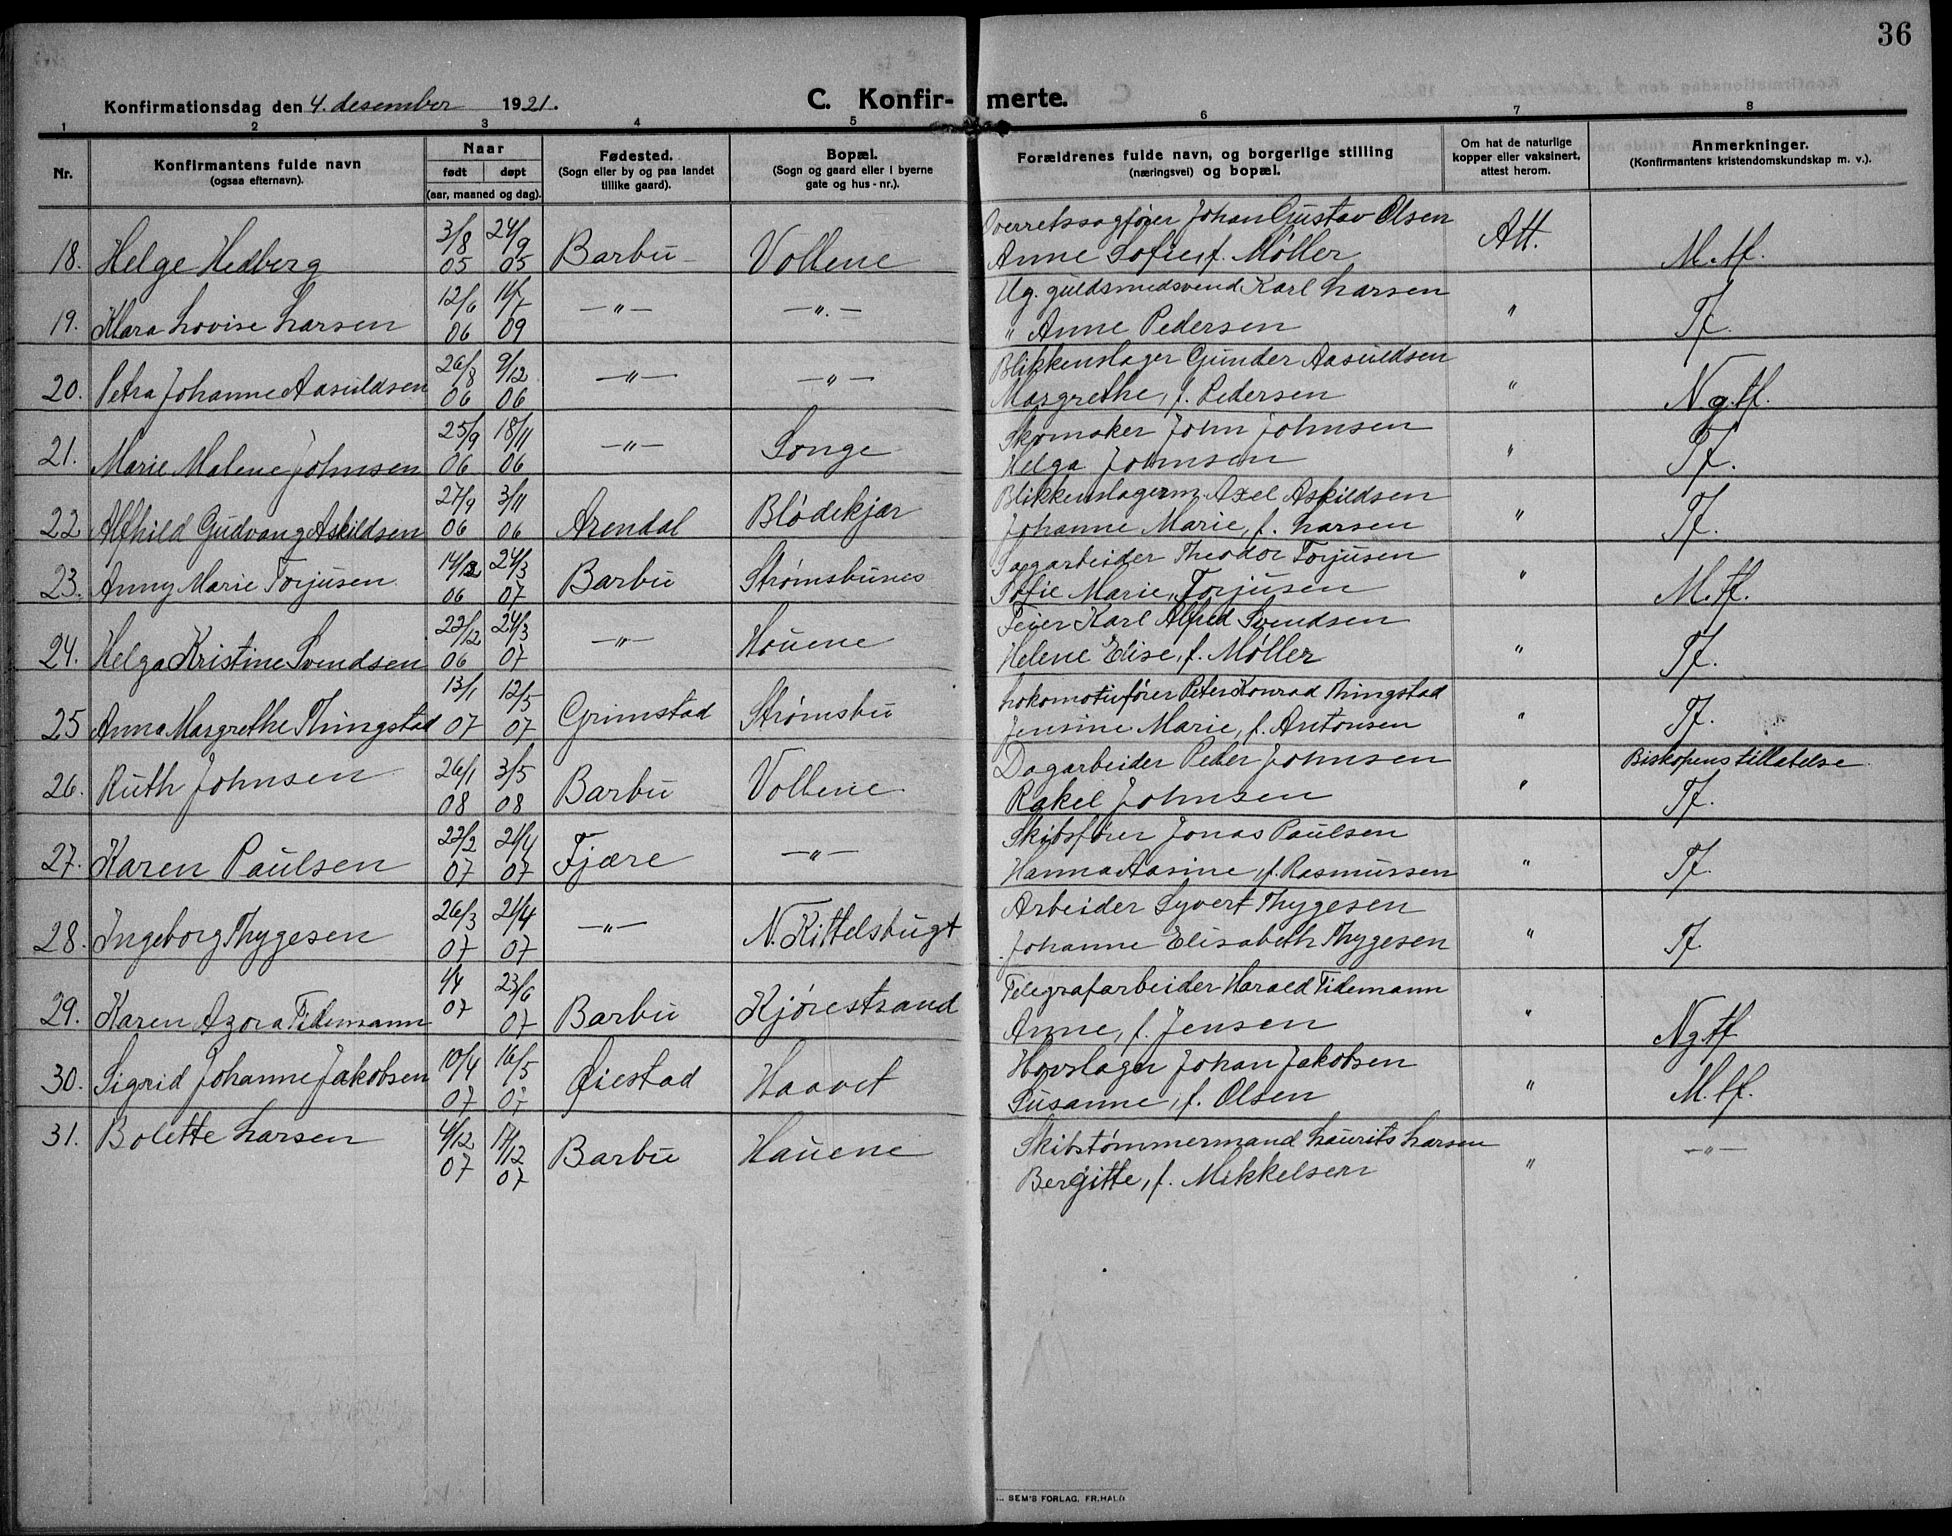 36
Konfirmationsdag den 4. desember 1921.
C. Konfir- merte.
1 2 3 4 5 6 7 8
Nr. Konfirmantens fulde navn (ogsaa efternavn). Naar født døpt (aar, maaned og dag). Fødested. (Sogn eller by og paa landet tillike gaard). Bopæl. (Sogn og gaard eller i byerne gate og hus-nr.). Forældrenes fulde navn, og borgerlige stilling (næringsvei) og bopæl. Om hat de naturlige kopper eller vaksinert, attest herom. Anmerkninger. (Konfirmantens kristendomskundskap m. v.).
18. Helge Hedberg 3/8 05 24/9 05 Barbu Vollene Overretssagfører Johan Gustav Olsen Att. M.tf.
Anne Sofie, f. Møller
19. Klara Lovise Larsen 12/6 06 11/7 09 —"— —".— Ug. guldsmedsvend Karl Larsen " Tf.
" Anne Pedersen
20. Petra Johanne Aasuldsen 26/8 06 9/12 06 —"— —"— Blikkenslager Gunder Aasuldsen " N.g.tf.
Margrethe, f. Pedersen
21. Marie Malene Johnsen 25/9 06 18/11 06 —"— Songe Skomaker John Johnsen " Tf.
Helga Johnsen
22 Alfhild Gudvang Askildsen 27/9 06 3/11 06 Arendal Blødekjær Blikkenslagerm. Axel Askildsen " Tf.
Johanne Marie, f. Larsen
23. Anny Marie Torjusen 14/12 06 24/3 07 Barbu Strømsbunes Dagarbeider Theodor Torjusen " M.tf.
Sofie Marie, Torjusen
24. Helga Kristine Svendsen 22/12 06 24/3 07 —"— Hauene Feier Karl Alfred Svendsen " Tf.
Helene Elise, f. Møller
25 Anna Margrethe Thingstad 13/1 07 12/5 07 Grimstad Strømsbu Lokomotivfører Peter Konrad Thingstad " Tf.
Jensine Marie, f. Antonsen
26. Ruth Johnsen 26/1 08 3/5 08 Barbu Vollene Dagarbeider Peder Johnsen " Biskopens tillatelse
Rakel Johnsen Tf.
27. Karen Paulsen 22/2 07 21/4 07 Fjære —"— Skibsfører Jonas Paulsen " Tf.
Hanna Aasine, f. Rasmussen
28. Ingeborg Thygesen 26/3 07 21/4 07 —"— N. Kittelsbugt Arbeider Syvert Thygesen " Tf.
Johanne Elisabeth Thygesen
29. Karen Azora Tidemann 1/4 07 23/6 07 Barbu Kjørestrand Telegrafarbeider Harald Tidemann " Ng tf
Anne, f. Jensen
30. Sigrid Johanne Jakobsen 10/4 07 16/5 07 Øiestad Haavet Hovslager Johan Jakobsen " M.tf.
Susanne, f. Olsen
31. Bolette Larsen 4/12 07 Barbu Hauene Skibstømmermand Laurits Larsen " —"—
Bergitte, f. Mikkelsen
SEM'S FORLAG, FR.HALD